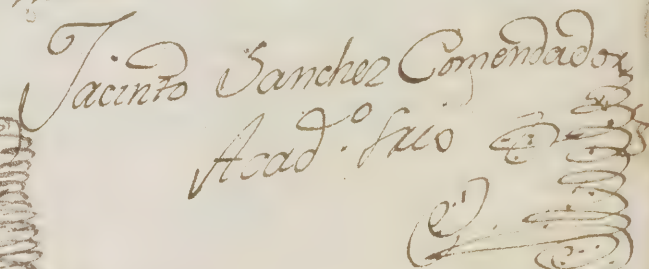 Jacinto Sanchez Comendador
Acad.º Srio